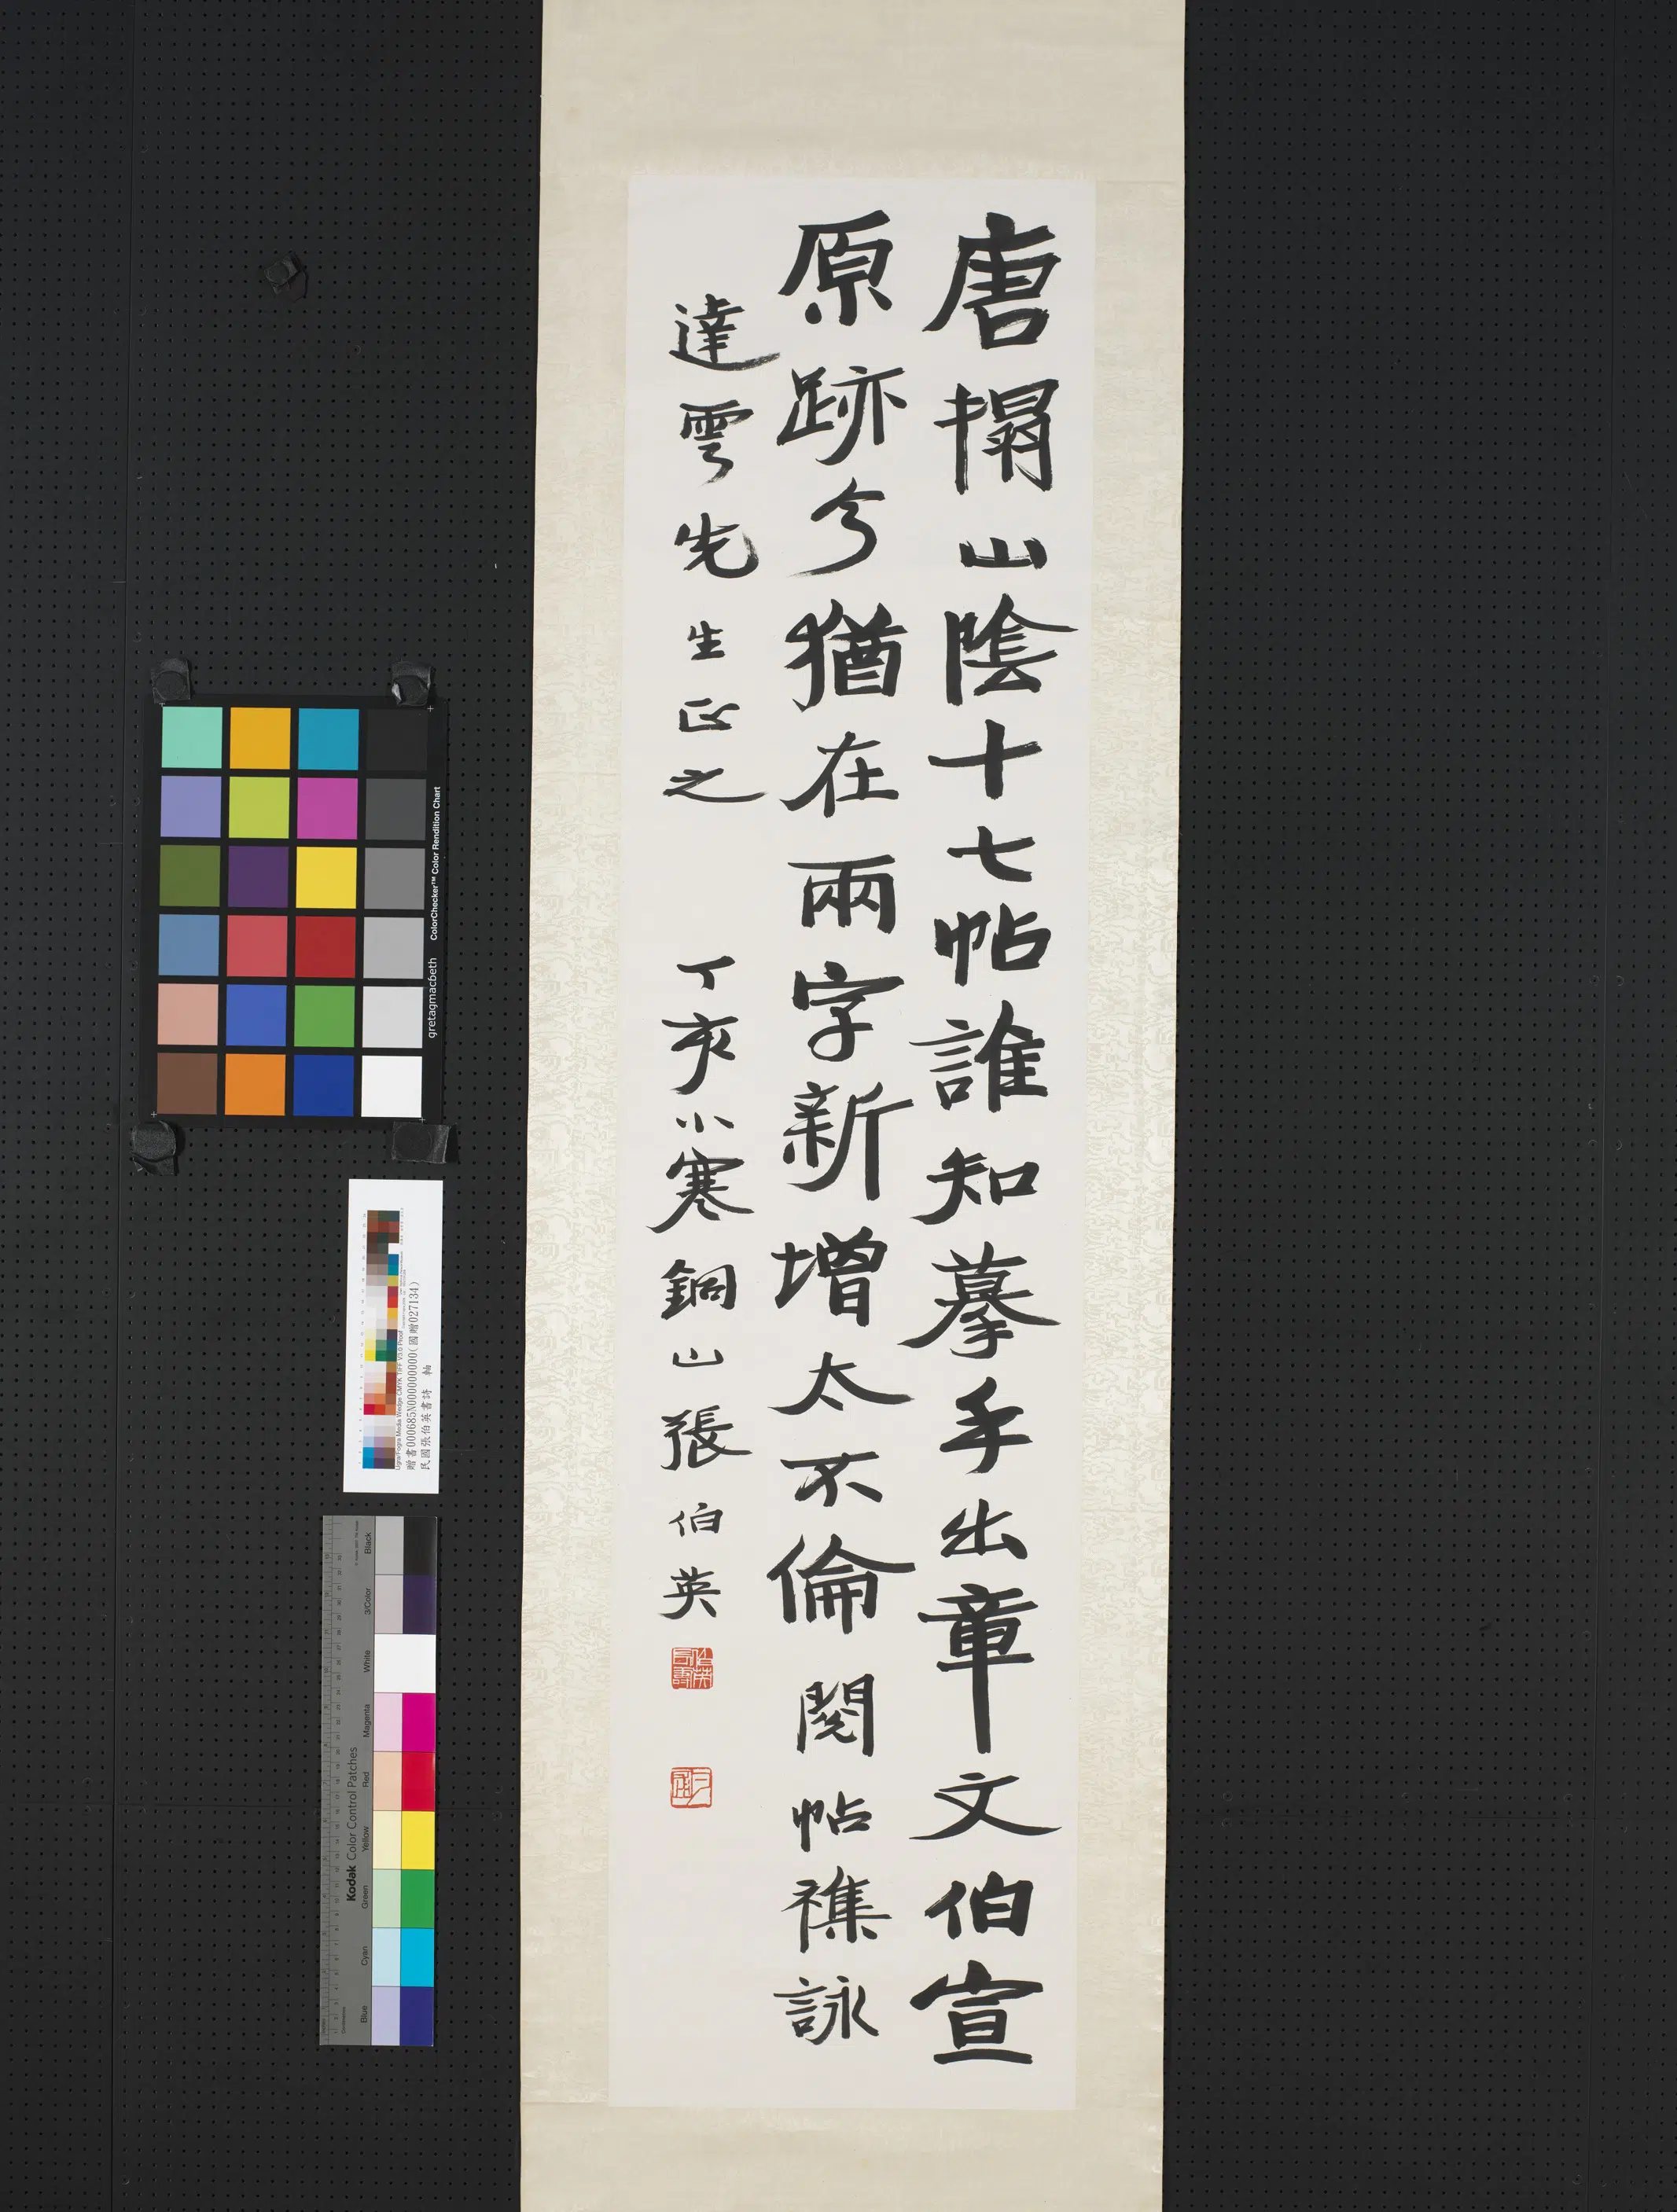 唐搨山陰十七帖誰知摹手出章文伯宣
原跡今猶在兩字新增太不倫閱帖襍詠
達雲先生正之 丁亥小寒銅山張伯英
ColorChecker™ Color Rendition Chart
gretagmacbeth
贈書000685N000000000(國贈027134)
民國張伯英書詩 軸
Kodak Color Control Patches
Black
3/Color
White
Magenta
Red
Yellow
Green
Cyan
Blue